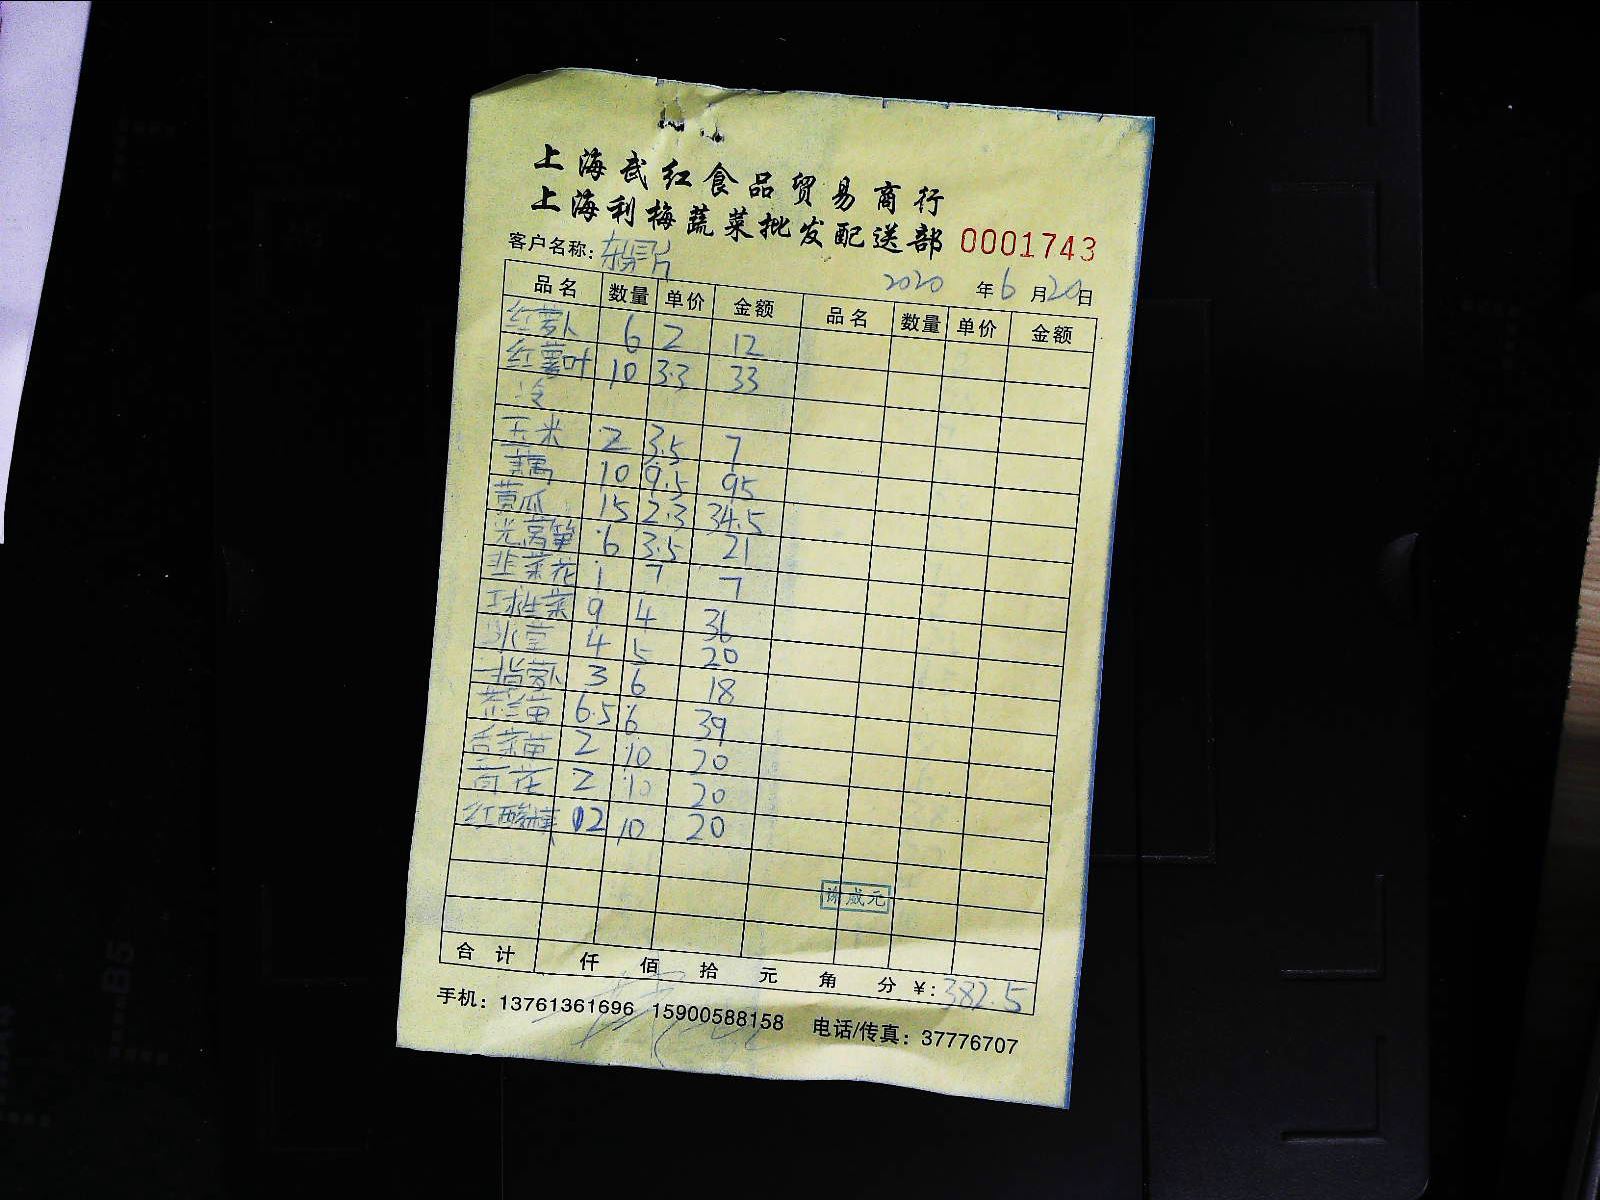 上海武红食品贸易商行
上海利梅蔬菜批发配送部 0001743
客户名称:
2020 年 6 月 20 日
品名 数量 单价 金额 品名 数量 单价 金额
红萝卜 6 2 12
红薯叶 10 3.3 33
冷
玉米 2 3.5 7
藕 10 9.5 95
黄瓜 15 2.3 34.5
光莴笋 6 3.5 21
韭菜花 1 7 7
球生菜 9 4 36
4 5 20
3 6 18
6.5 6 39
苗 2 10 20
荷花 2 10 20
红酸模 2 10 20
威元
合计 仟 佰 拾 元 角 分 ¥: 382.5
手机: 13761361696 15900588158 电话/传真: 37776707